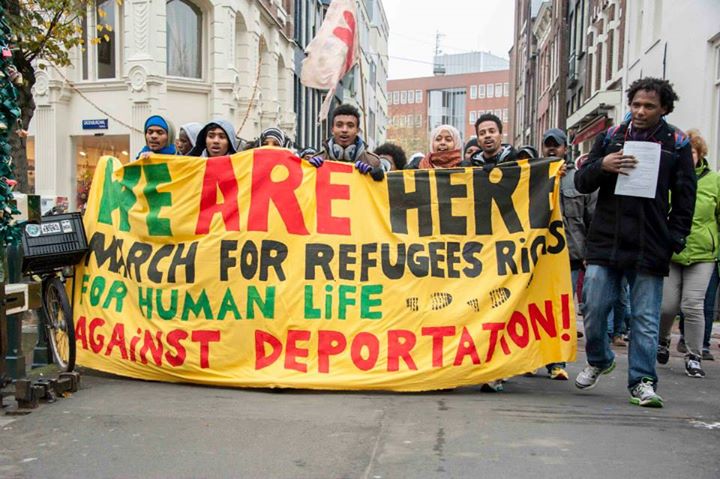 WE ARE HERE
MARCH FOR REFUGEES RIGHTS
FOR HUMAN LiFE
AGAiNST DEPORTATiON!